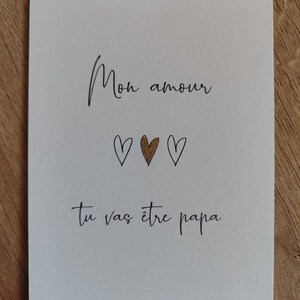 Mon amour
tu vas être papa